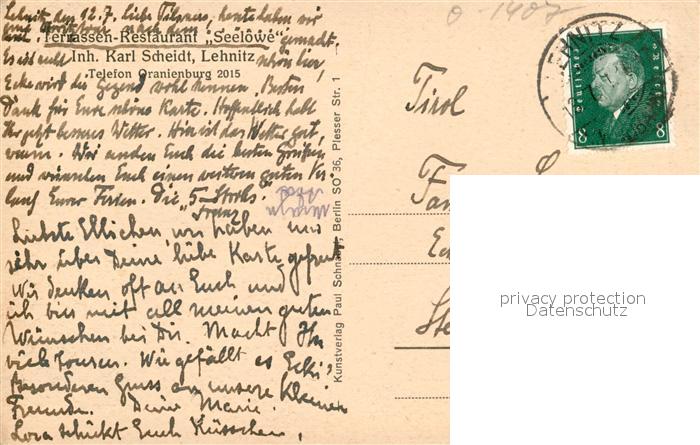 Lehnitz den 12.7. Liebe Tilpners, heute haben wir
eine nach dem gemacht,
Terrassen-Restaurant „Seelöwe"
Inh. Karl Scheidt, Lehnitz
Telefon Oranienburg 2015
Es ist sehr schön hier,
Ecke wird die Gegend wohl kennen. Besten
Dank für Eure schöne Karte. Hoffentlich habt
Ihr jetzt besseres Wetter. Hier ist das Wetter gut,
warm. Wir senden Euch die besten Grüße
und wünschen Euch einen weiteren guten Ver-
lauf Eurer Ferien. Die „5
Franz
Liebste Ellichen, wir haben uns
sehr über Deine liebe Karte gefreut
Wir denken oft an Euch und
ich bin mit all meinen guten
Wünschen bei Dir. Macht Ihr
viele Touren. Wie gefällt es Ecki?
Besonderen Gruss an unsere kleinen
Freunde. Deine Marie.
Lora schickt Euch Küsschen.
Kunstverlag Paul Schnabel, Berlin SO 36, Plesser Str. 1
0-1907
LEHNITZ
Deutsches Reich
8 8
Tirol
Fam
Ec
Ste
privacy protection
Datenschutz